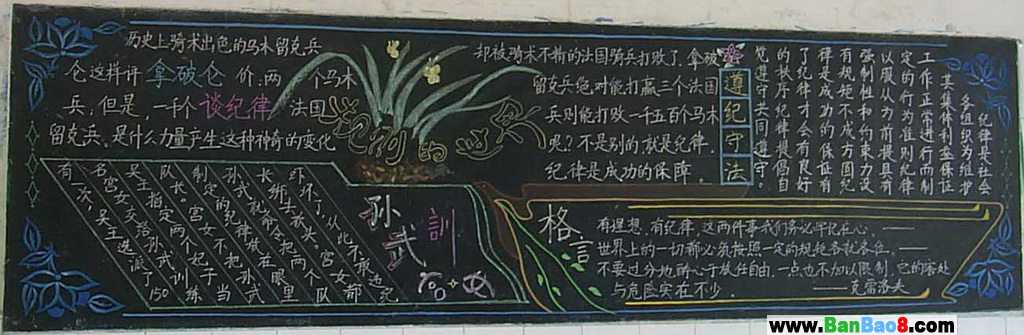 历史上骑术出色的马木留克兵
仑这样评拿破仑价:两个马木
兵.但是,一千个谈纪律法国
留克兵、是什么力量产生这种神奇的变化
纪律的
却被骑术不精的法国骑兵打败了.拿破
留克兵绝对能打赢三个法国
兵则能打败一千五百个马木
呢?不是别的就是纪律.
纪律是成功的保障。
遵纪守法
纪律是社会
各组织为维护
其集体利益保证
工作正常进行而制
定的行为准则纪律
以服从为前提具有
强制性和约束力设
有规矩不成方圆纪
律是成功的保证有
了纪律才会有良好
的秩序纪律提倡自
觉遵守共同遵守。
有一次,吴王选派了150
名宫女交给孙武训练
吴王指定两个妃子当
队长。宫女不把孙武
制定的纪律放在眼里
孙武就命令把两个队
长绑出去杀
了.从此宫女都
不敢违纪
孙武訓
格言
有理想,有纪律,这两件事我们务必牢记在心。——
世界上的一切都必须按照一定的规矩各就各位。——
不要过分地醉心于放任自由,一点也不加以限制,它的害处
与危险实在不少.——克雷洛夫
www.BanBao8.com